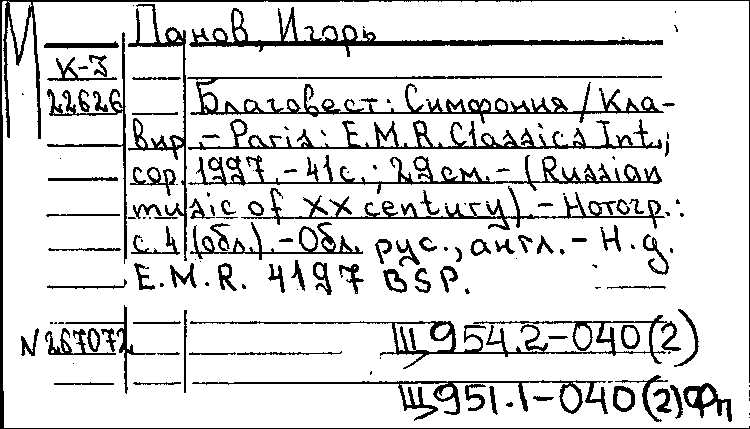 М
Панов, Игорь
К-3
22626 Благовест: Симфония / Кла-
вир. – Paris: E.M.R. Classics Int.,
cop. 1997. – 41 с.; 29 см. – (Russian
music of XX century). – Нотогр.:
с. 4 (обл.). – Обл. рус., англ. – Н.д.
E.M.R. 4197 BSP.
N 267072 Щ954.2-040(2)
Щ951.1-040(2)Фп